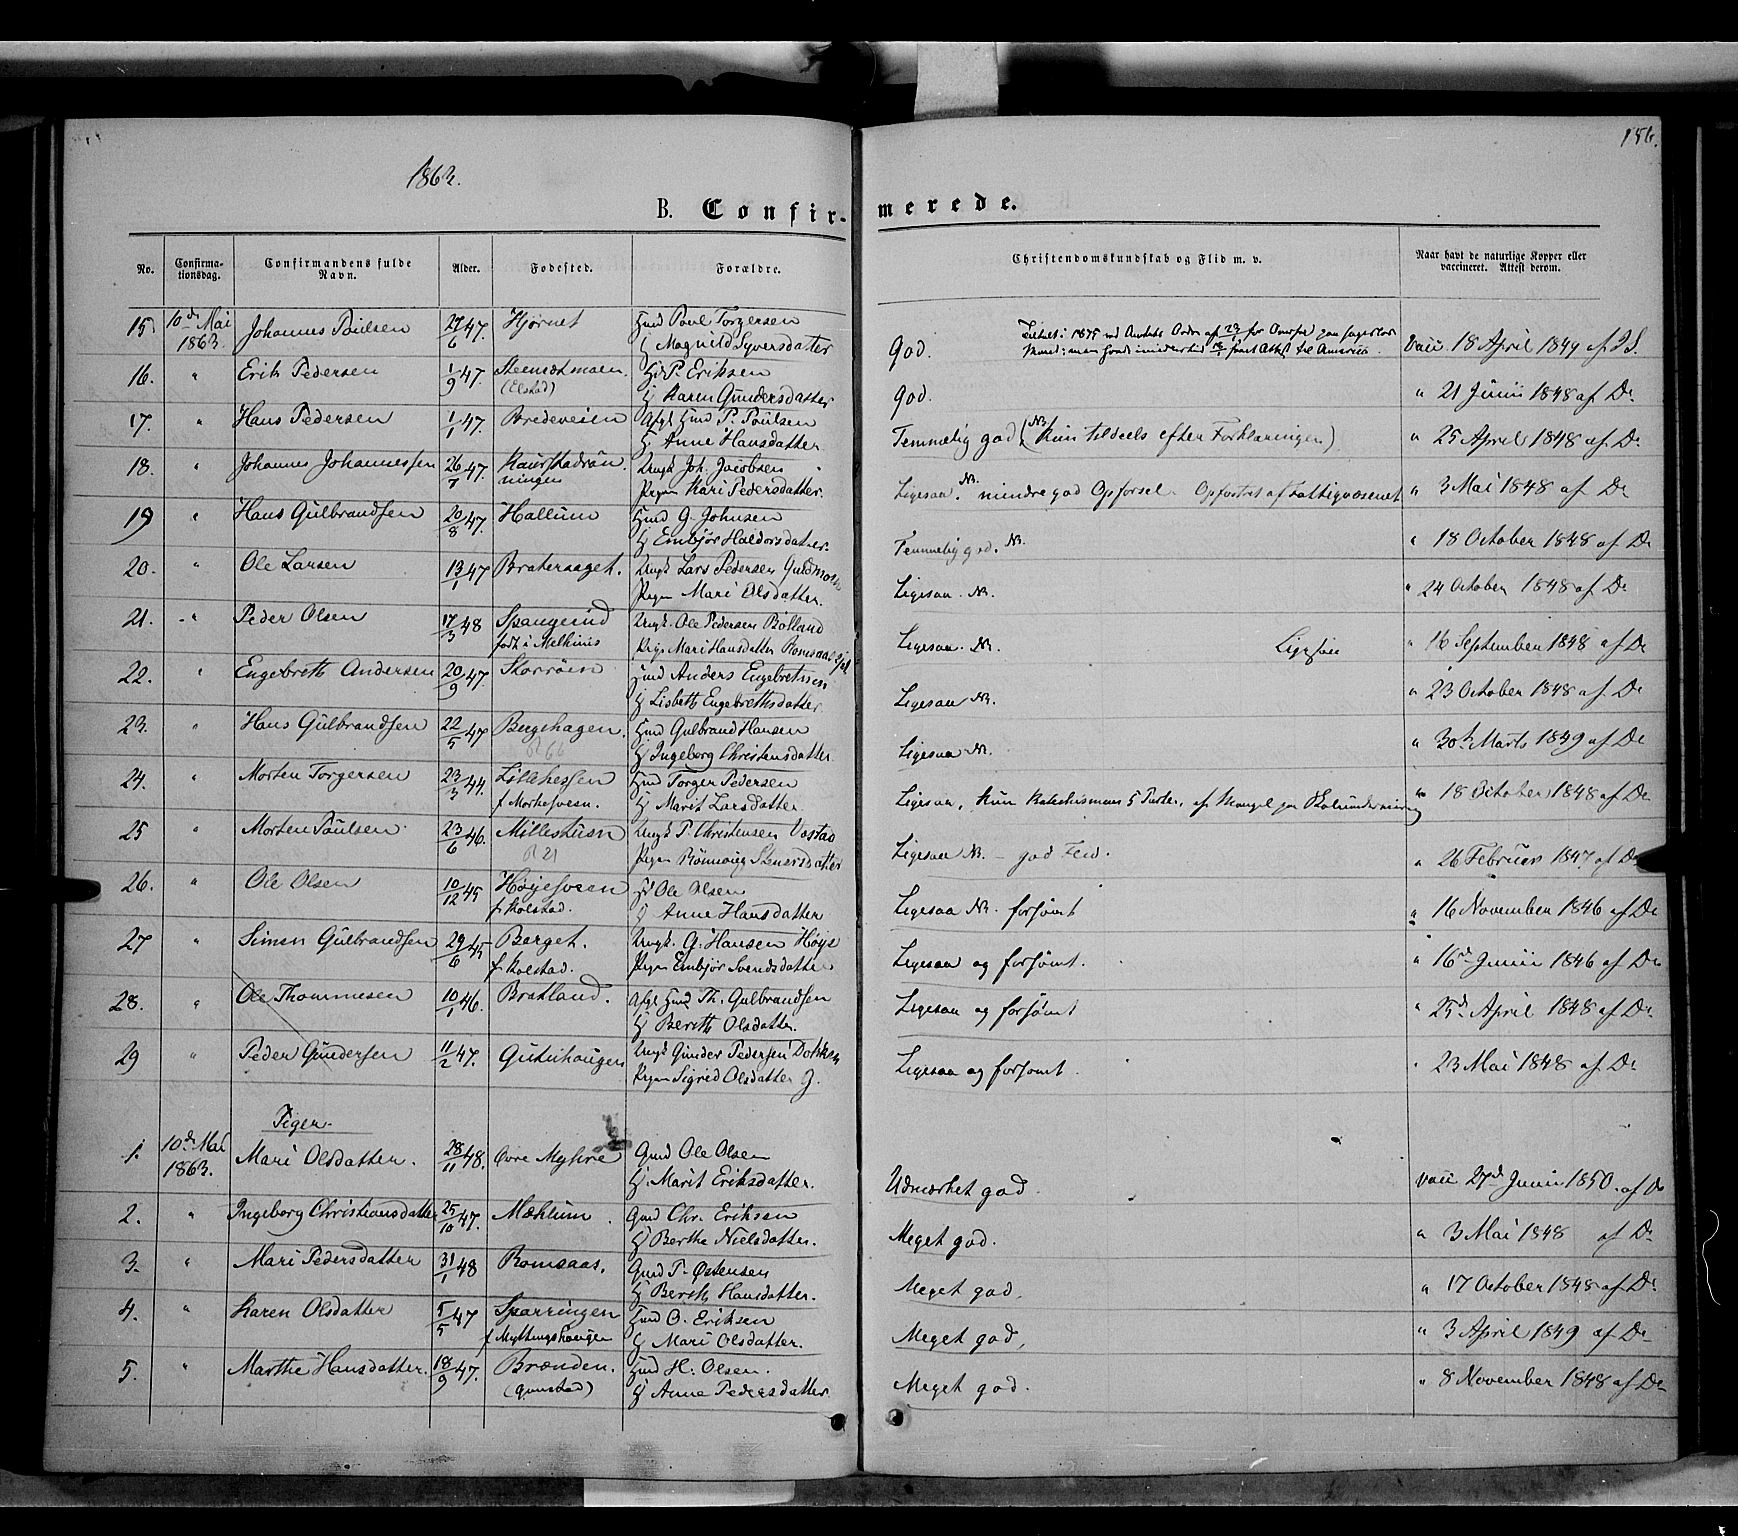 156.
1863.
B. Confirmerede.
No. Confirmationsdag. Confirmandens fulde Navn. Alder. Fødested. Forældre. Christendomskundskab og Flid m. v. Naar havt de naturlige Kopper eller vaccineret. Attest derom.
15. 10de Mai 1863. Johannes Poulsen 27/6 47. Hjørnet Hmd Povl Torgersen
H Magnild Syversdatter god. vacc 18 April 1849 af
16. " Erik Pedersen 1/9 47. (Elstad) P. Eriksen
H Karen Gundersdatter god. " 21 Junii 1848 af Do
17. " Hans Pedersen 1/1 47. Bredeveien Afgl Hmd P. Poulsen
H Anne Hansdatter Temmelig god (NB. kun tildeels efter Forklaringen) " 25 April 1848 af Do
18. " Johannes Johannessen 26/7 47. Ungk Joh. Jacobsen
Pigen Kari Pedersdatter. Ligesaa. NB. mindre god Opførsel. Opfostret af Fattigvæsenet " 3 Mai 1848 af Do
19 " Hans Gulbrandsen 20/8 47. Hallum Hmd G. Johnsen
H Embjør Haldorsdatter. Temmelig god. NB. " 18 October 1848 af Do
20. " Ole Larsen 13/1 47 Ungk Lars Pedersen
Pigen Mari Olsdatter. Ligesaa. NB. " 24 October 1848 af Do
21. " Peder Olsen 17/3 48 født i Ungk. Ole Pedersen
Pige Mari Hansdatter Ligesaa. NB. Ligesaa " 16 September 1848 af Do
22. " Engebreth Andersen 20/9 47. Hmd Anders Engebretsen
H Lisbeth Engebrethsdatter Ligesaa NB. " 23 October 1848 af Do
23. " Hans Gulbrandsen 22/5 47 Bugshagen. Hmd Gulbrand Hansen
H Ingeborg Christensdatter Ligesaa NB. " 30te Marts 1849 af Do
24. " Morten Torgersen 23/3 44. Hmd Torger Pedersen
H Marit Larsdatter Ligesaa, kun Katechismens 5 Parter, af Mangel paa " 18 October 1848 af Do
25 " Morten Poulsen 23/6 46. Ungk P. Christensen
Pigen Rønnoug Stenersdatter Ligesaa NB. – god Flid. " 26 Februar 1847 af Do
26. " Ole Olsen 10/12 45 f. Kolstad. Ole Olsen
H Anne Hansdatter Ligesaa NB. forsømt " 16 November 1846 af Do
27 " Simen Gulbrandsen 29/6 45 Berget.
f. Kolstad. Ungk. G. Hansen
Pigen Embjør Svendsdatter Ligesaa og forsømt. " 16de Junii 1846 af Do
28. " Ole Thommesen 10/1 46. Bratland. Afgl Hmd Th. Gulbrandsen
H Berith Olsdatter. Ligesaa og forsømt " 25de April 1848 af Do
29 " Peder Gundersen 11/2 47. Ungk Gunder Pedersen
Pigen Sigrid Olsdatter Ligesaa og forsømt. " 23 Mai 1848 af Do
Piger.
1. 10de Mai 1863. Mari Olsdatter. 28/11 48. Øvre Myhre Gmd Ole Olsen
H. Marit Eriksdatter. Udmærket god. vacc 27de Junii 1850. af Do
2. " Ingeborg Christiansdatter 25/10 47. Mæhlum. Gmd Chr. Eriksen
H Berthe Nielsdatter. Meget god. " 3 Mai 1848 af Do
3. " Mari Pedersdatter 31/1 48 Romsaas. Gmd P. Østensen
H Berith Hansdatter. Meget god. " 17 October 1848 af Do
4. " Karen Olsdatter 5/5 47 Sparringen Hmd O. Eriksen
H Mari Olsdatter. Meget god, " 3 April 1849 af Do
5. " Marthe Hansdatter. 18/9 47. Brænden. Hmd H. Olsen.
H Anne Pedersdatter Meget god. " 8 November 1848 af Do